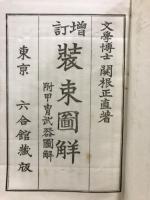 文學博士 關根正直著
增訂
裝束圖解
附甲冑武器圖解
東京 六合館藏版